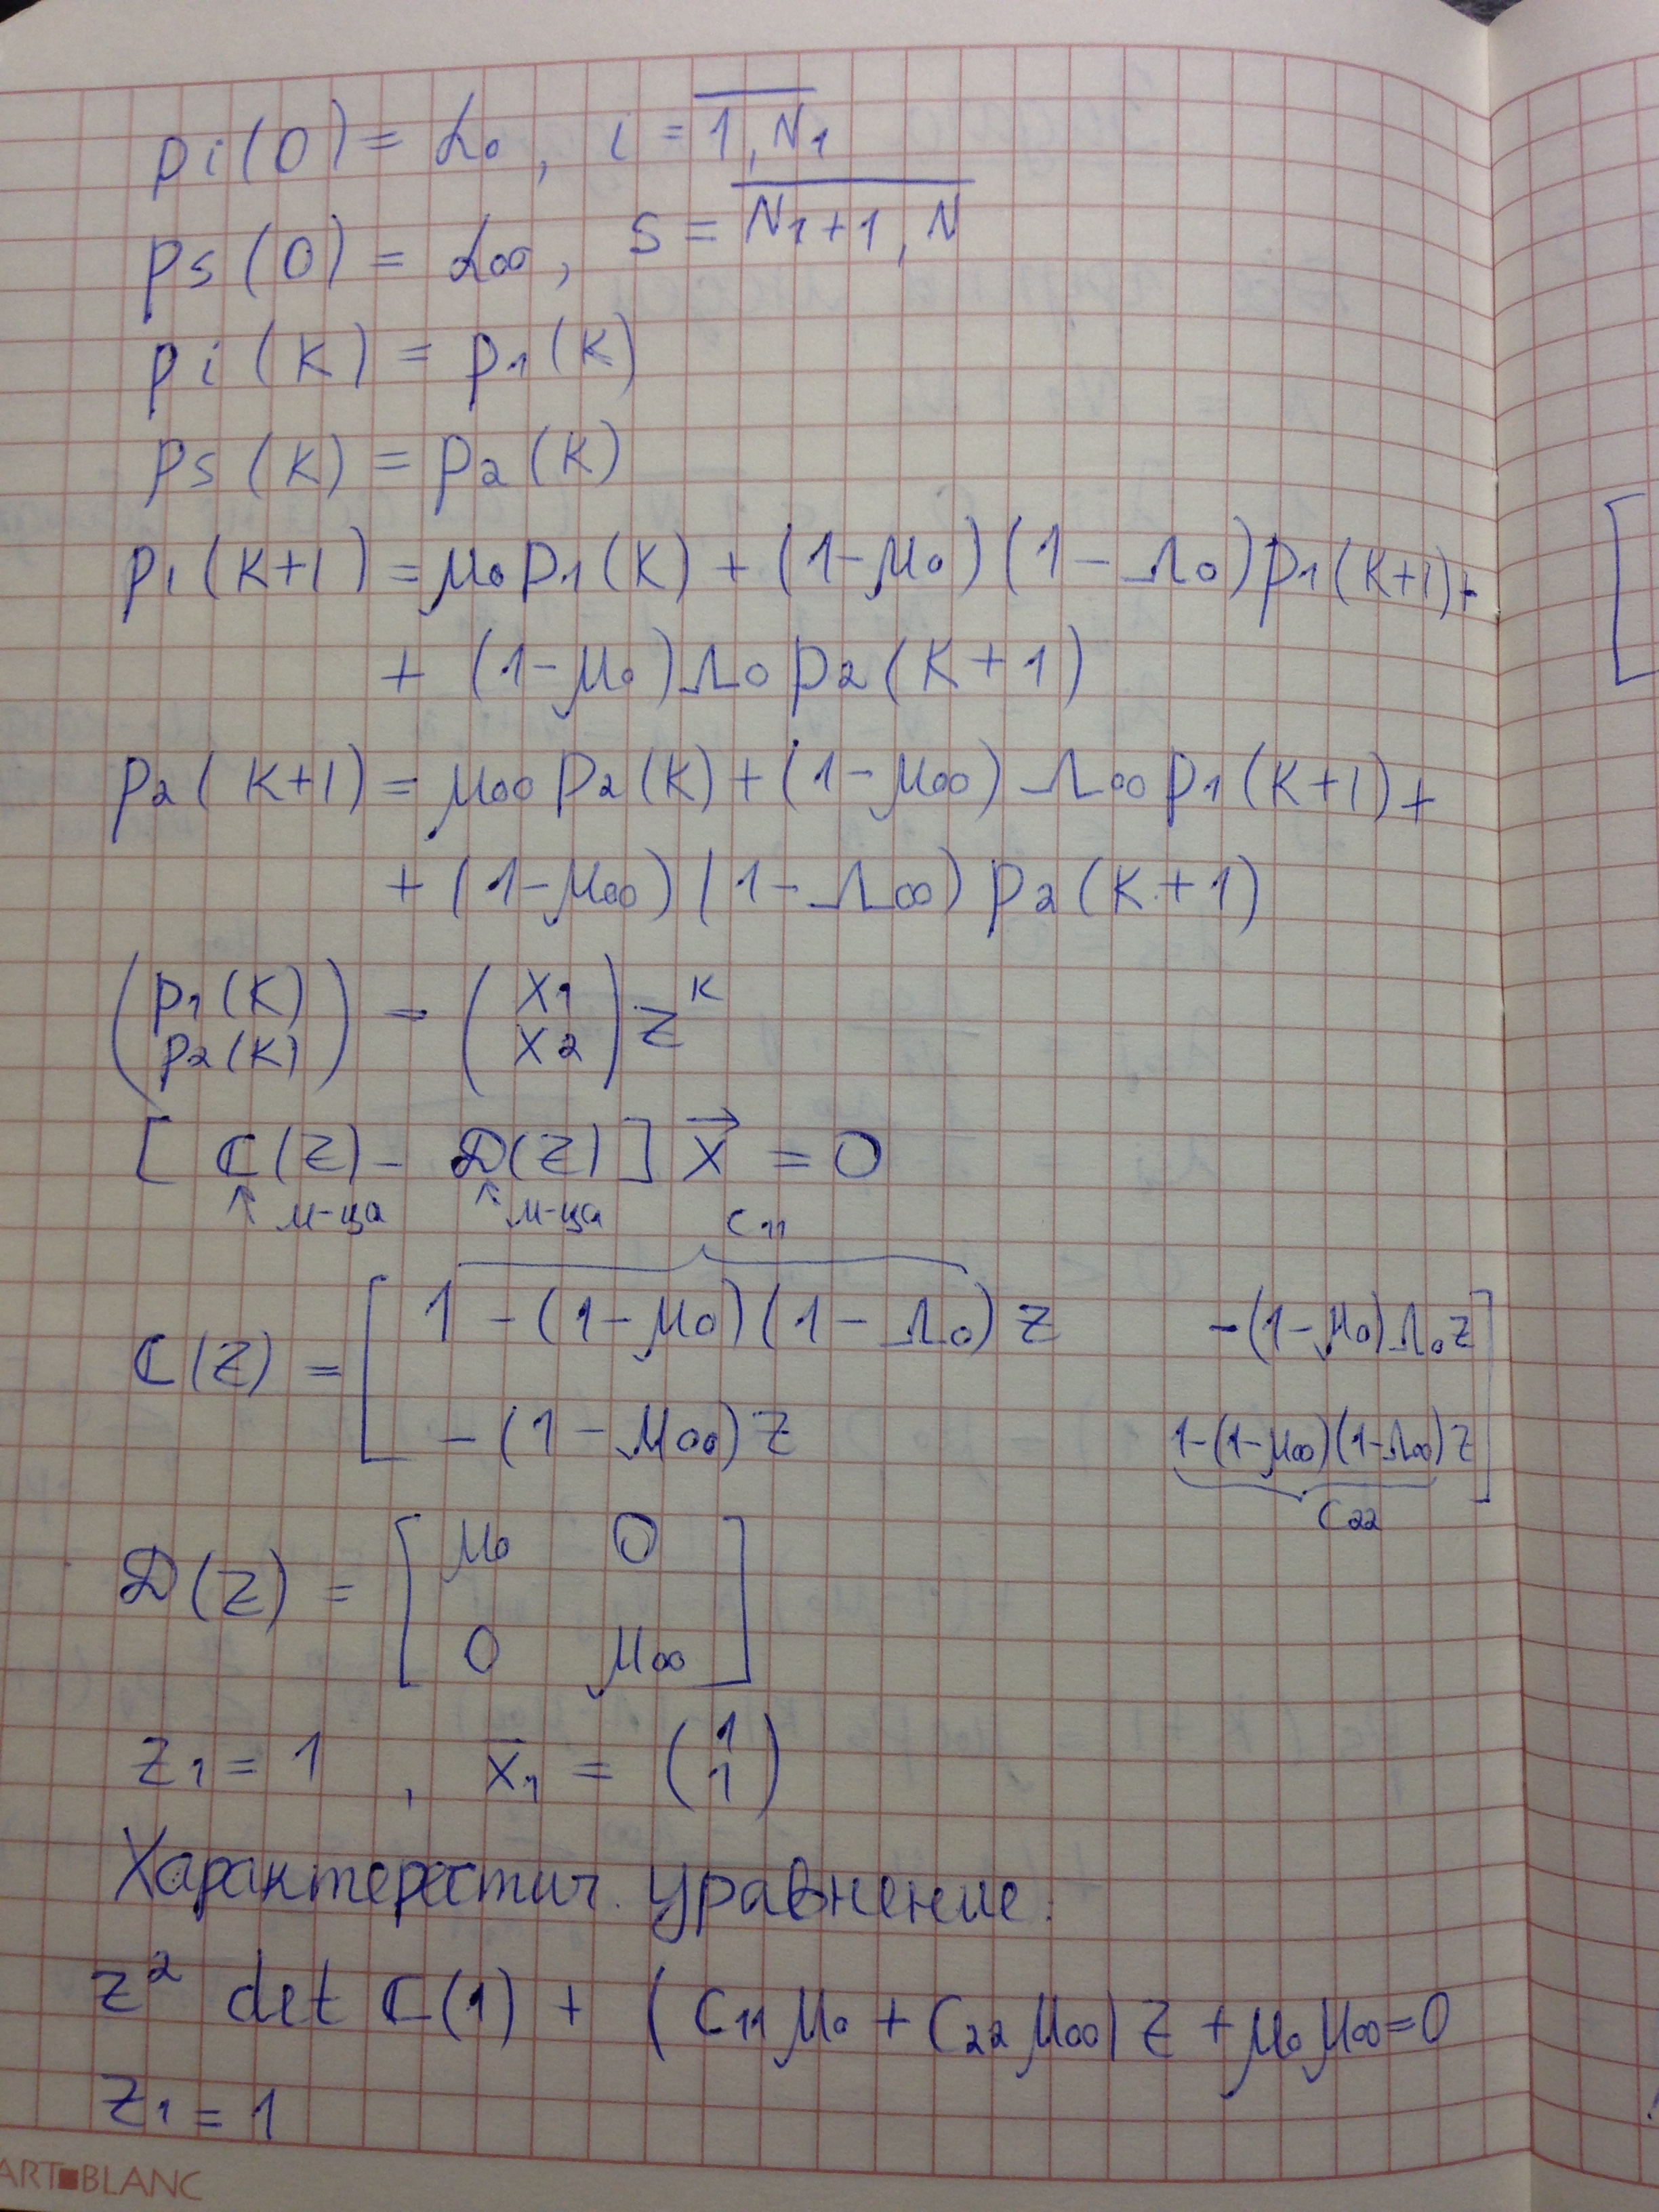 pi(0) = α₀, i = 1, N₁
ps(0) = α₀₀, s = N₁+1, N
pi(k) = p₁(k)
ps(k) = p₂(k)
p₁(k+1) = μ₀p₁(k) + (1-μ₀)(1-Λ₀)p₁(k+1)+
+ (1-μ₀)Λ₀p₂(k+1)
p₂(k+1) = μ₀₀p₂(k)+(1-μ₀₀)Λ₀₀p₁(k+1)+
+ (1-μ₀₀)(1-Λ₀₀)p₂(k+1)
(p₁(k) p₂(k)) = (x₁ x₂) z^k
[ C(z) - D(z) ] x⃗ = 0
↑ м-ца ↑ м-ца
c₁₁
C(z) = [ 1-(1-μ₀)(1-Λ₀)z -(1-μ₀)Λ₀z
-(1-μ₀₀)z 1-(1-μ₀₀)(1-Λ₀₀)z ]
c₂₂
D(z) = [ μ₀ 0
0 μ₀₀ ]
z₁ = 1, x̄₁ = (1 1)
Характерестич. уравнение:
z² det C(1) + (c₁₁μ₀ + c₂₂μ₀₀)z + μ₀μ₀₀=0
z₁ = 1
ART BLANC